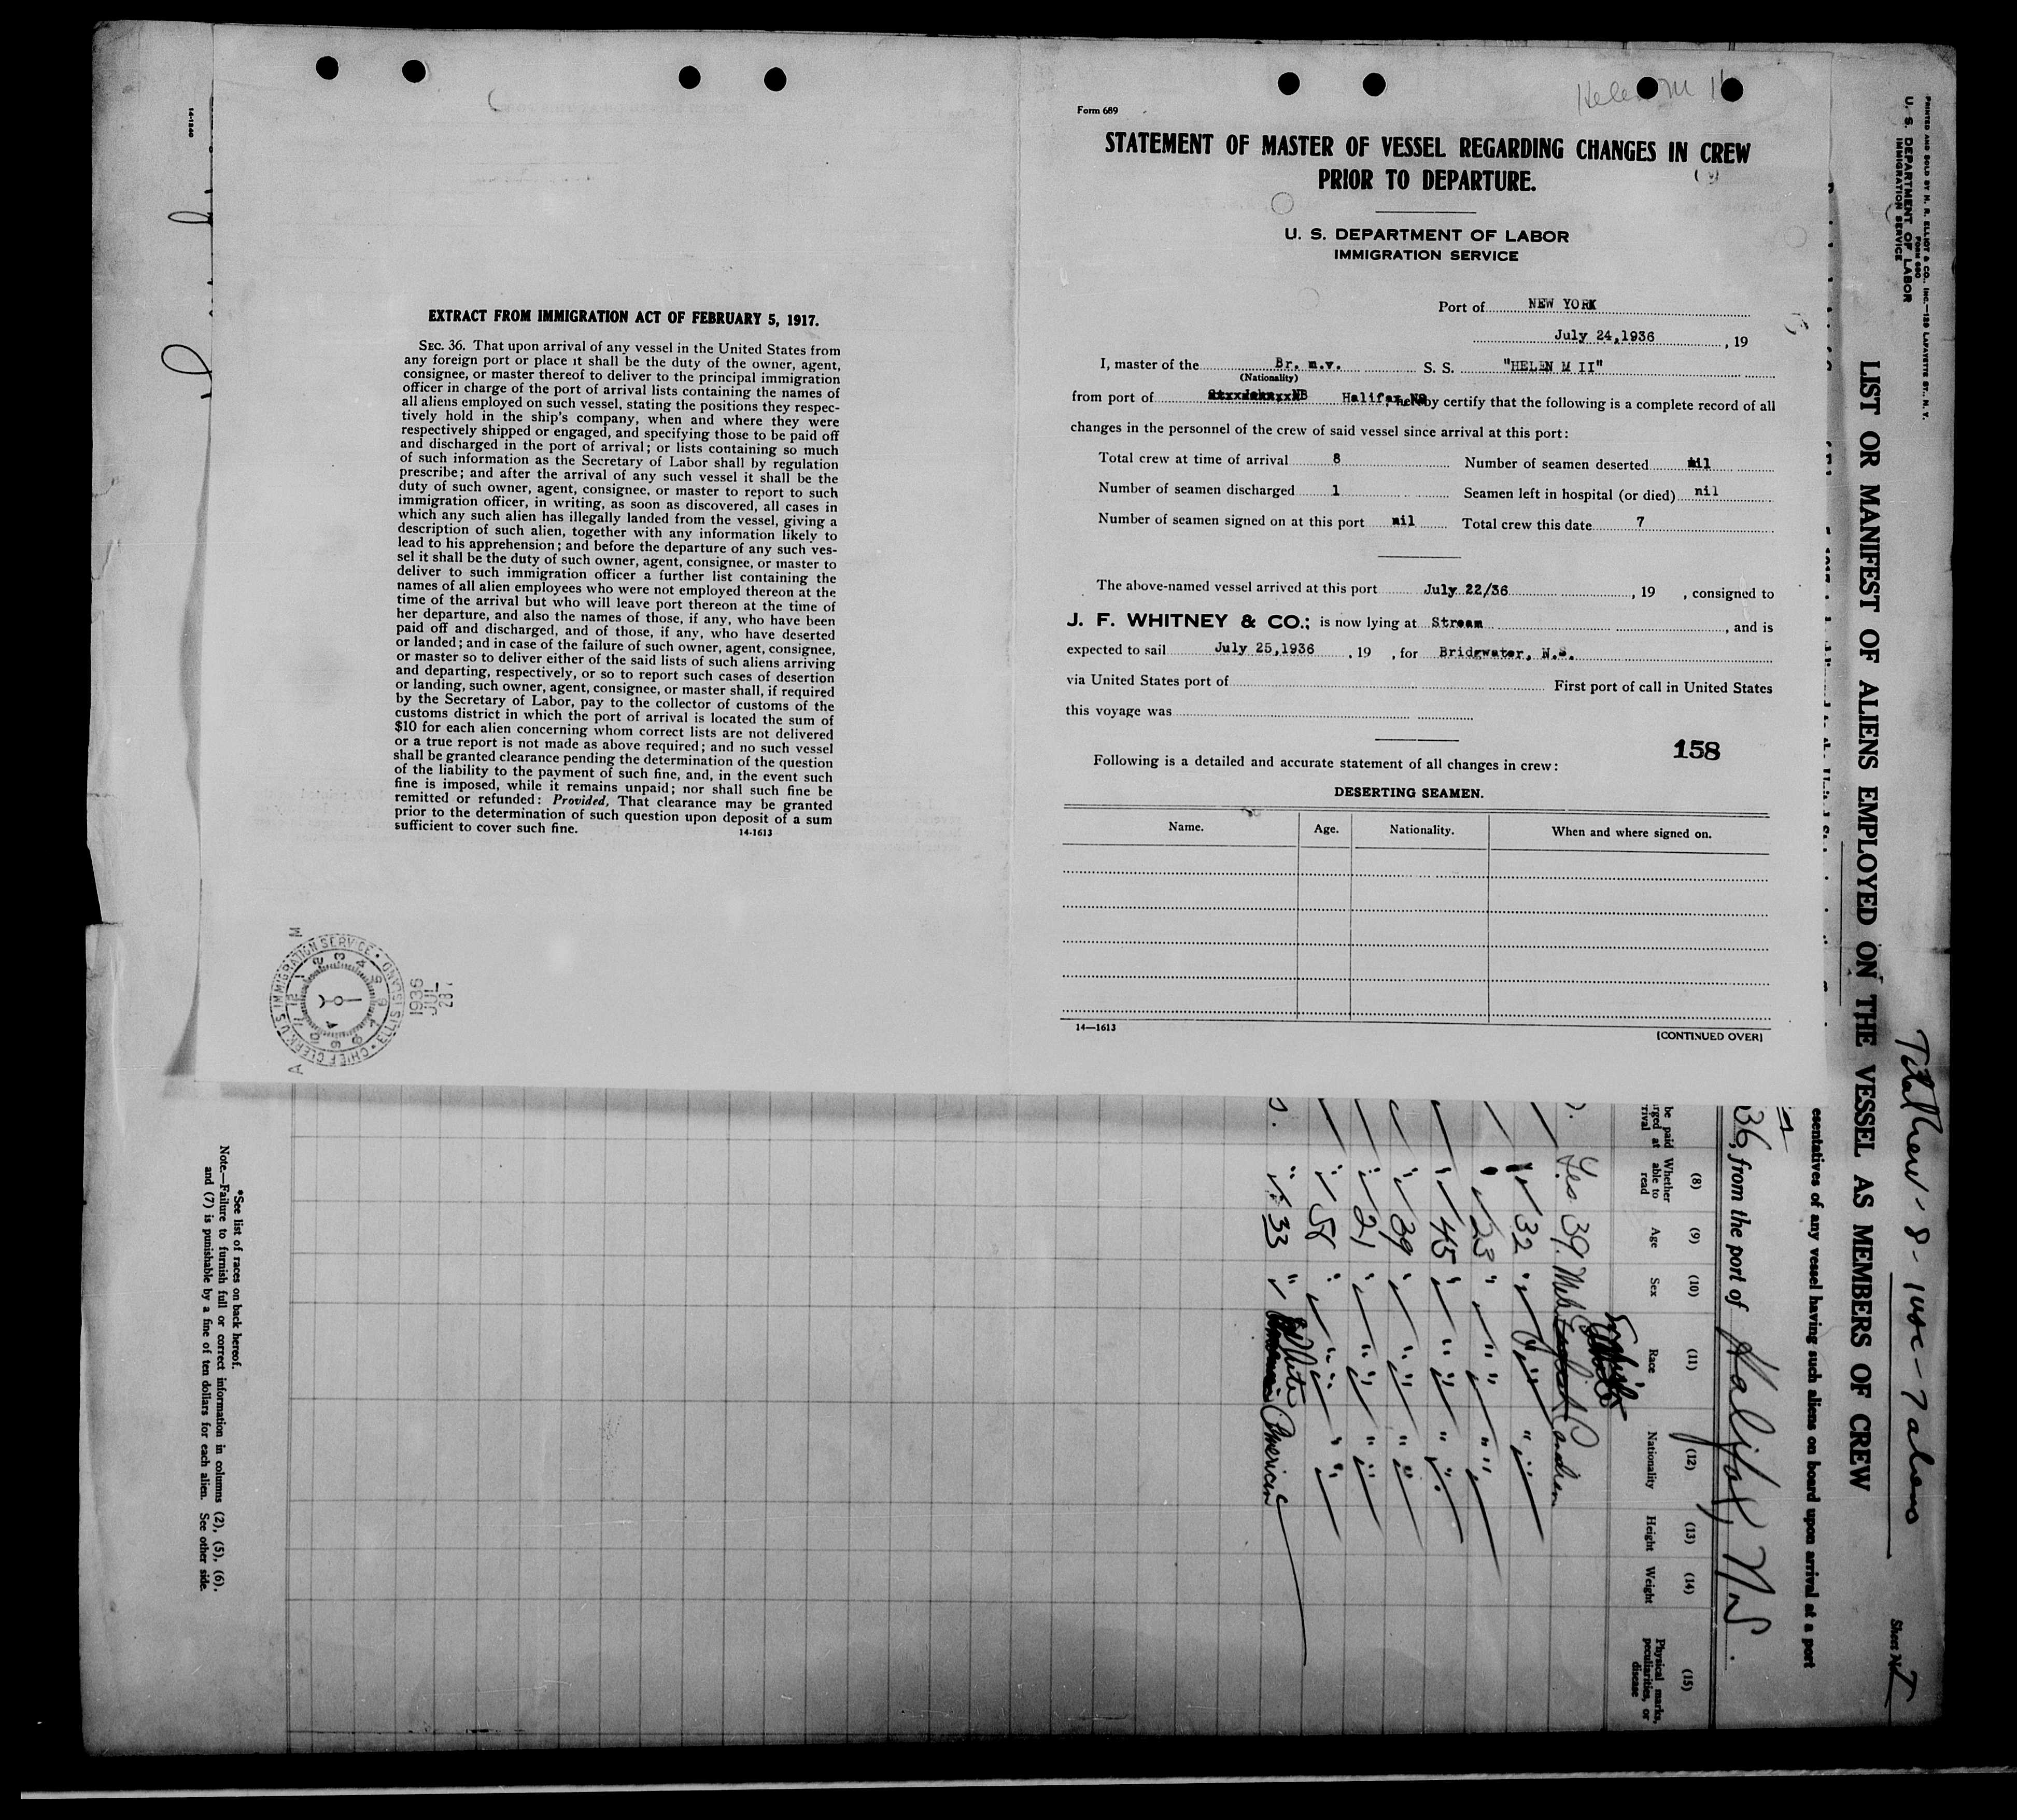 Helen M II
Form 689
STATEMENT OF MASTER OF VESSEL REGARDING CHANGES IN CREW
PRIOR TO DEPARTURE.
U. S. DEPARTMENT OF LABOR
IMMIGRATION SERVICE
Port of NEW YORK
July 24,1936 , 19
I, master of the Br. m.v. S. S. "HELEN M II"
(Nationality)
from port of Halifax NS hereby certify that the following is a complete record of all
changes in the personnel of the crew of said vessel since arrival at this port:
Total crew at time of arrival 8 Number of seamen deserted nil
Number of seamen discharged 1 Seamen left in hospital (or died) nil
Number of seamen signed on at this port nil Total crew this date 7
The above-named vessel arrived at this port July 22/36 , 19 , consigned to
J. F. WHITNEY & CO.; is now lying at Stream , and is
expected to sail July 25,1936 , 19 , for Bridgwater, N.S.
via United States port of First port of call in United States
this voyage was
158
Following is a detailed and accurate statement of all changes in crew:
DESERTING SEAMEN.
Name. Age. Nationality. When and where signed on.
14—1613 [CONTINUED OVER]
EXTRACT FROM IMMIGRATION ACT OF FEBRUARY 5, 1917.
SEC. 36. That upon arrival of any vessel in the United States from
any foreign port or place it shall be the duty of the owner, agent,
consignee, or master thereof to deliver to the principal immigration
officer in charge of the port of arrival lists containing the names of
all aliens employed on such vessel, stating the positions they respec-
tively hold in the ship's company, when and where they were
respectively shipped or engaged, and specifying those to be paid off
and discharged in the port of arrival; or lists containing so much
of such information as the Secretary of Labor shall by regulation
prescribe; and after the arrival of any such vessel it shall be the
duty of such owner, agent, consignee, or master to report to such
immigration officer, in writing, as soon as discovered, all cases in
which any such alien has illegally landed from the vessel, giving a
description of such alien, together with any information likely to
lead to his apprehension; and before the departure of any such ves-
sel it shall be the duty of such owner, agent, consignee, or master to
deliver to such immigration officer a further list containing the
names of all alien employees who were not employed thereon at the
time of the arrival but who will leave port thereon at the time of
her departure, and also the names of those, if any, who have been
paid off and discharged, and of those, if any, who have deserted
or landed; and in case of the failure of such owner, agent, consignee,
or master so to deliver either of the said lists of such aliens arriving
and departing, respectively, or so to report such cases of desertion
or landing, such owner, agent, consignee, or master shall, if required
by the Secretary of Labor, pay to the collector of customs of the
customs district in which the port of arrival is located the sum of
$10 for each alien concerning whom correct lists are not delivered
or a true report is not made as above required; and no such vessel
shall be granted clearance pending the determination of the question
of the liability to the payment of such fine, and, in the event such
fine is imposed, while it remains unpaid; nor shall such fine be
remitted or refunded: Provided, That clearance may be granted
prior to the determination of such question upon deposit of a sum
sufficient to cover such fine.
14-1613
U.S. IMMIGRATION SERVICE · ELLIS ISLAND · CHIEF CLERK
1936
JUL
14-1240
PRINTED AND SOLD BY M. R. ELLIOT & CO., INC.—129 LAFAYETTE ST., N. Y.
FORM 680
U. S. DEPARTMENT OF LABOR
IMMIGRATION SERVICE
LIST OR MANIFEST OF ALIENS EMPLOYED ON THE VESSEL AS MEMBERS OF CREW
esentatives of any vessel having such aliens on board upon arrival at a port
36, from the port of Halifax, NS.
(8) (9) (10) (11) (12) (13) (14) (15)
Whether able to read Age Sex Race Nationality Height Weight Physical marks, peculiarities, or disease
Yes 39
" 32 " " "
" 23 " " "
" 45 " " "
" 39 " " "
" 21 " " "
" 58 " " "
" 33 " White American
*See list of races on back hereof.
Note.—Failure to furnish full or correct information in columns (2), (5), (6),
and (7) is punishable by a fine of ten dollars for each alien. See other side.